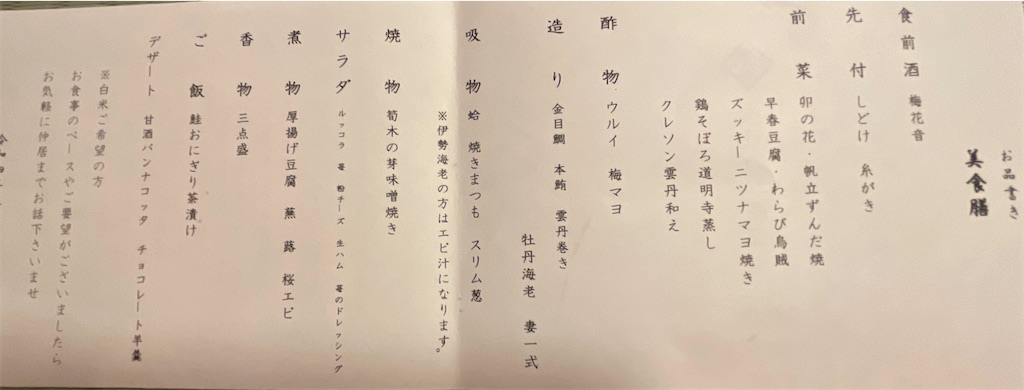 お品書き
美食膳
食前酒 梅花音
先付 しどけ 糸がき
前菜 卯の花・帆立ずんだ焼
早春豆腐・わらび烏賊
ズッキーニツナマヨ焼き
鶏そぼろ道明寺蒸し
クレソン雲丹和え
酢物 ウルイ 梅マヨ
造り 金目鯛 本鮪 雲丹巻き
牡丹海老 妻一式
吸物 蛤 焼きまつも スリム葱
※伊勢海老の方はエビ汁になります。
焼物 筍木の芽味噌焼き
サラダ ルッコラ 苺 粉チーズ 生ハム 苺のドレッシング
煮物 厚揚げ豆腐 蕪 蕗 桜エビ
香物 三点盛
ご飯 鮭おにぎり茶漬け
デザート 甘酒パンナコッタ チョコレート羊羹
※白米ご希望の方
お食事のペースやご要望がございましたら
お気軽に仲居までお話下さいませ